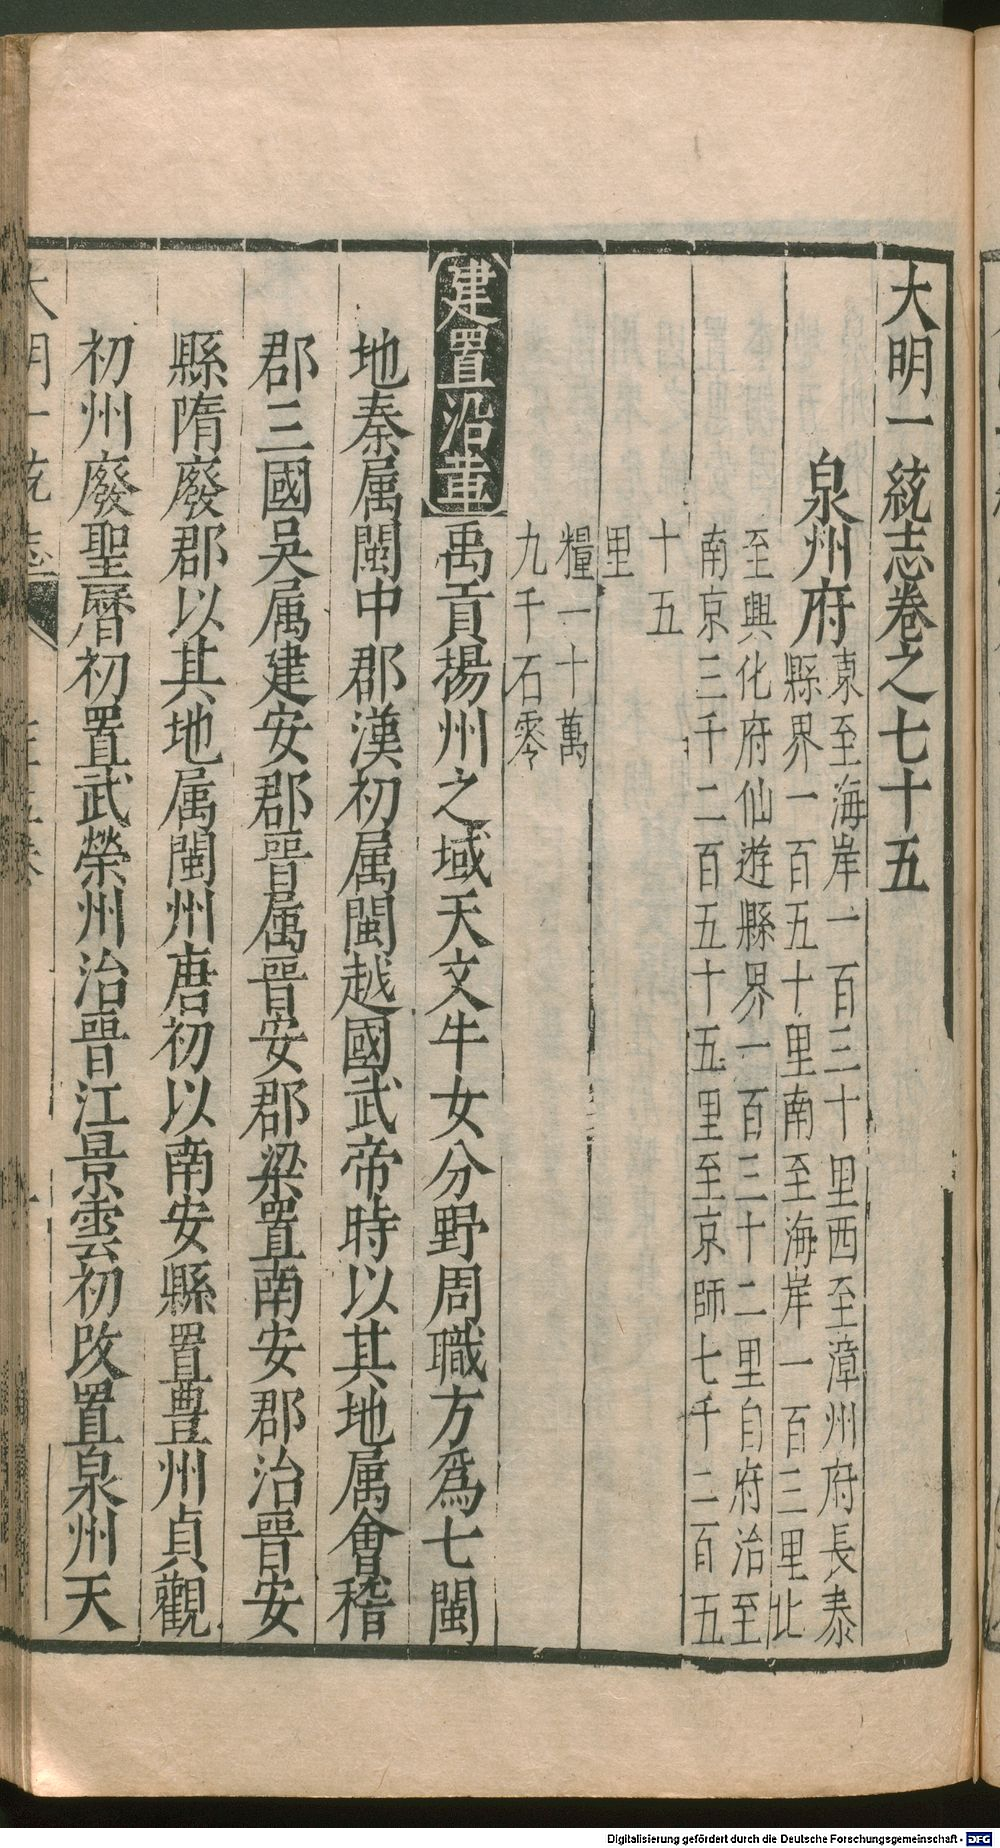 大明一統志卷之七十五
泉州府
東至海岸一百三十里西至漳州府長泰
縣界一百五十里南至海岸一百三里北
至興化府仙遊縣界一百三十二里自府治至
南京三千二百五十五里至京師七千二百五
十五
里
糧一十萬
九千石零
建置沿革禹貢揚州之域天文牛女分野周職方爲七閩
地秦属閩中郡漢初属閩越國武帝時以其地属會稽
郡三國吳属建安郡晉属晉安郡梁置南安郡治晉安
縣隋廢郡以其地属閩州唐初以南安縣置豊州貞觀
初州廢聖曆初置武榮州治晉江景雲初改置泉州天
大明一統志
Digitalisierung gefördert durch die Deutsche Forschungsgemeinschaft - DFG